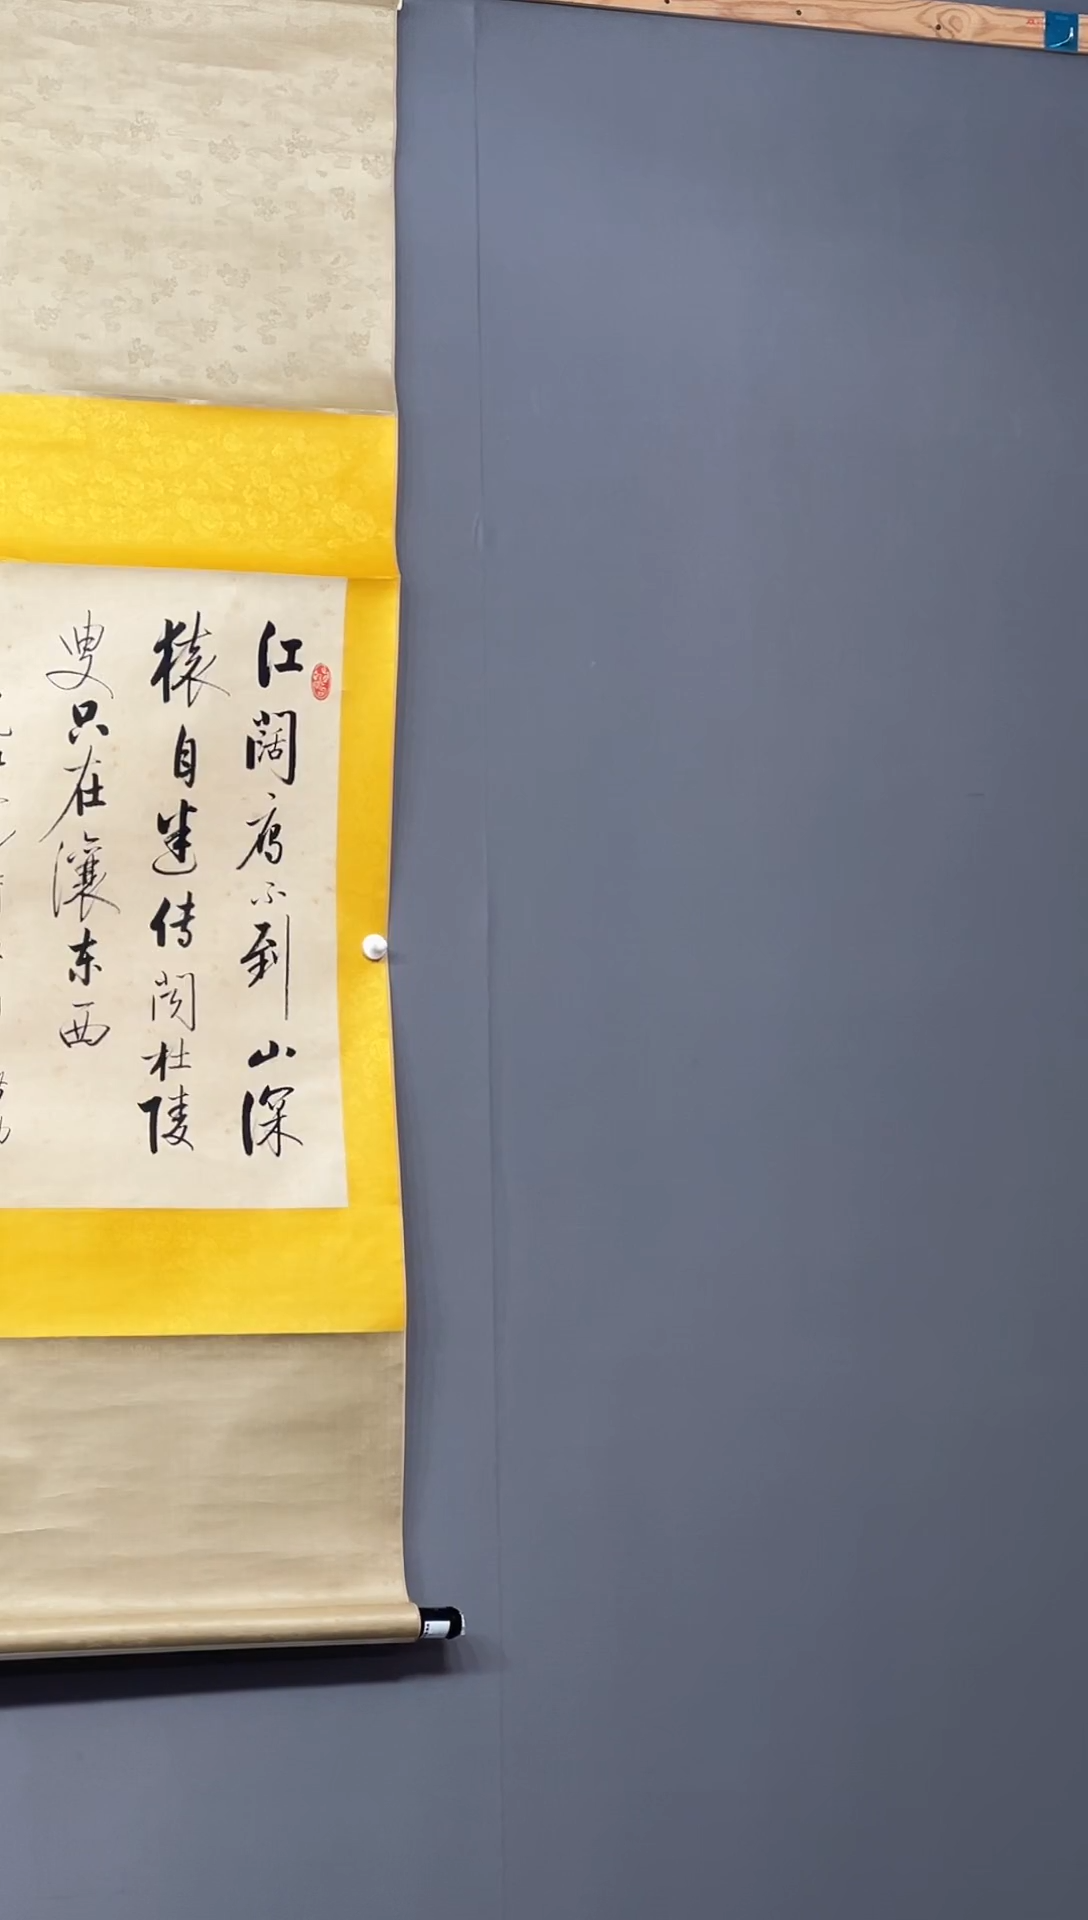 江阔雁不到山深
猿自迷传闻杜陵
叟只在瀼东西